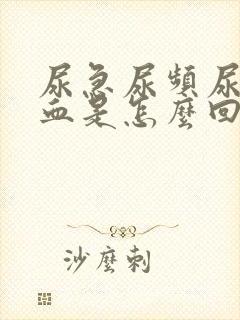 尿急尿頻尿
血是怎麼回
沙麼刺